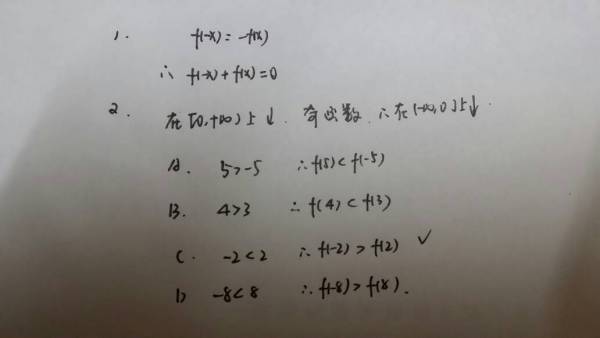 1. f(-x)=-f(x)
∴ f(-x)+f(x)=0
2. 在[0,+∞)上↓. 奇函数 ∴在(-∞,0]上↓.
A. 5>-5 ∴f(5)<f(-5)
B. 4>3 ∴f(4)<f(3)
C. -2<2 ∴f(-2)>f(2) ✓
D -8<8 ∴f(-8)>f(8).